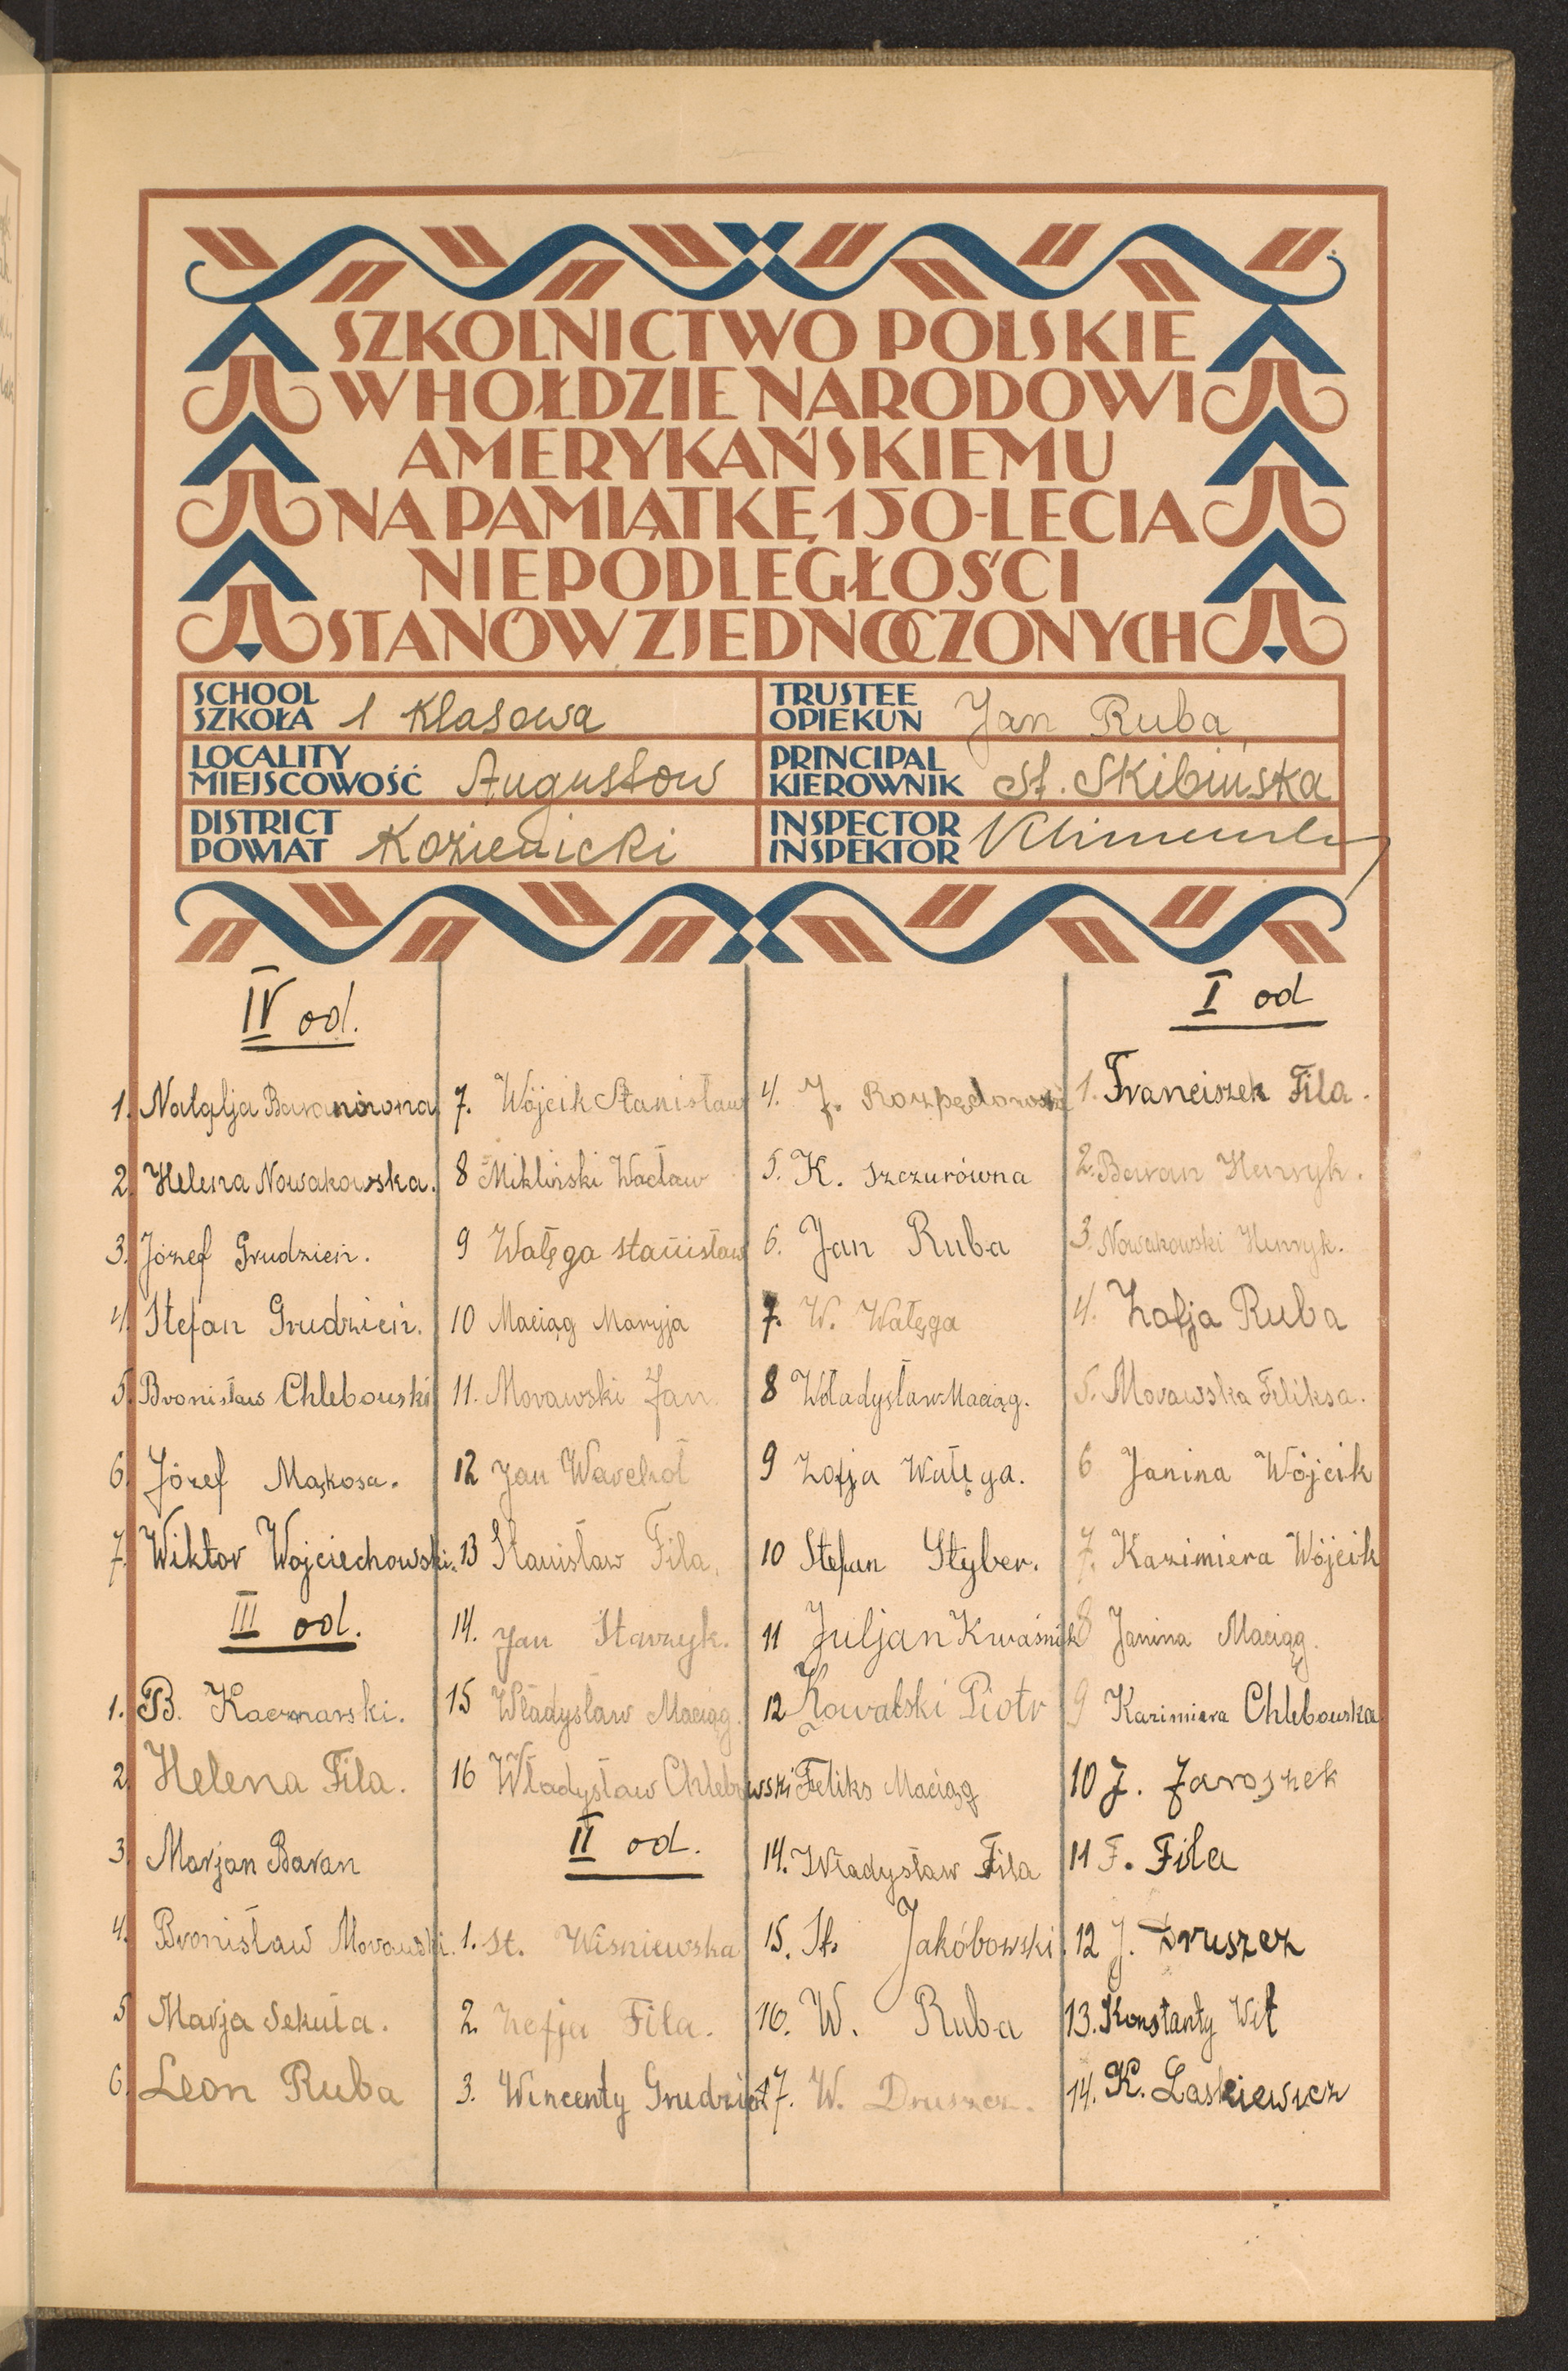 SZKOLNICTWO POLSKIE
W HOŁDZIE NARODOWI
AMERYKAŃSKIEMU
NA PAMIĄTKĘ 150-LECIA
NIEPODLEGŁOŚCI
STANÓW ZJEDNOCZONYCH
SCHOOL
SZKOŁA 1 Klasowa
TRUSTEE
OPIEKUN Jan Ruba
LOCALITY
MIEJSCOWOŚĆ Augustow
PRINCIPAL
KIEROWNIK St. Skibińska
DISTRICT
POWIAT Kozienicki
INSPECTOR
INSPEKTOR
IV od.
1. Natalja Baranówna
2. Helena Nowakowska.
3. Józef Grudzień.
4. Stefan Grudzień.
5. Bronisław Chlebowski
6. Józef Mąkosa.
7. Wiktor Wojciechowski.
III od.
1. B. Kacmarski.
2. Helena Fila.
3. Marjan Baran
4. Bronisław Morawski.
5 Marja Sekuła.
6. Leon Ruba
7. Wójcik Stanisław
8 Mikliński Wacław
9 Wałęga stanisław
10 Maciąg Maryja
11. Morawski Jan
12 Jan Wavchoł
13 Stanisław Fila.
14. Jan Stavzyk.
15 Władysław Maciąg.
16 Władysław Chlebowski
II od.
1. St. Wiśniewska
2. Zofja Fila.
3. Wincenty Grudzień
4. J.
5. K. Szczurówna
6. Jan Ruba
7. W. Wałęga
8 Władysław Maciąg.
9 Zofja Wałęga.
10 Stefan Styber.
11 Juljan Kwaśnik
12 Kowalski Piotr
Feliks Maciąg
14. Władysław Fila
15. St. Jakóbowski.
16. W. Ruba
17. W. Druszcz.
I od
1. Franciszek Fila.
2. Baran Henryk.
3. Nowakowski Henryk.
4. Zofja Ruba
5. Morawska Feliksa.
6 Janina Wójcik
7. Kazimiera Wójcik
8 Janina Maciąg.
9 Kazimiera Chlebowska
10 J. Jaroszek
11 F. Fila
12 J. Druszcz
13. Konstanty Wit
14. K. Laskiewicz